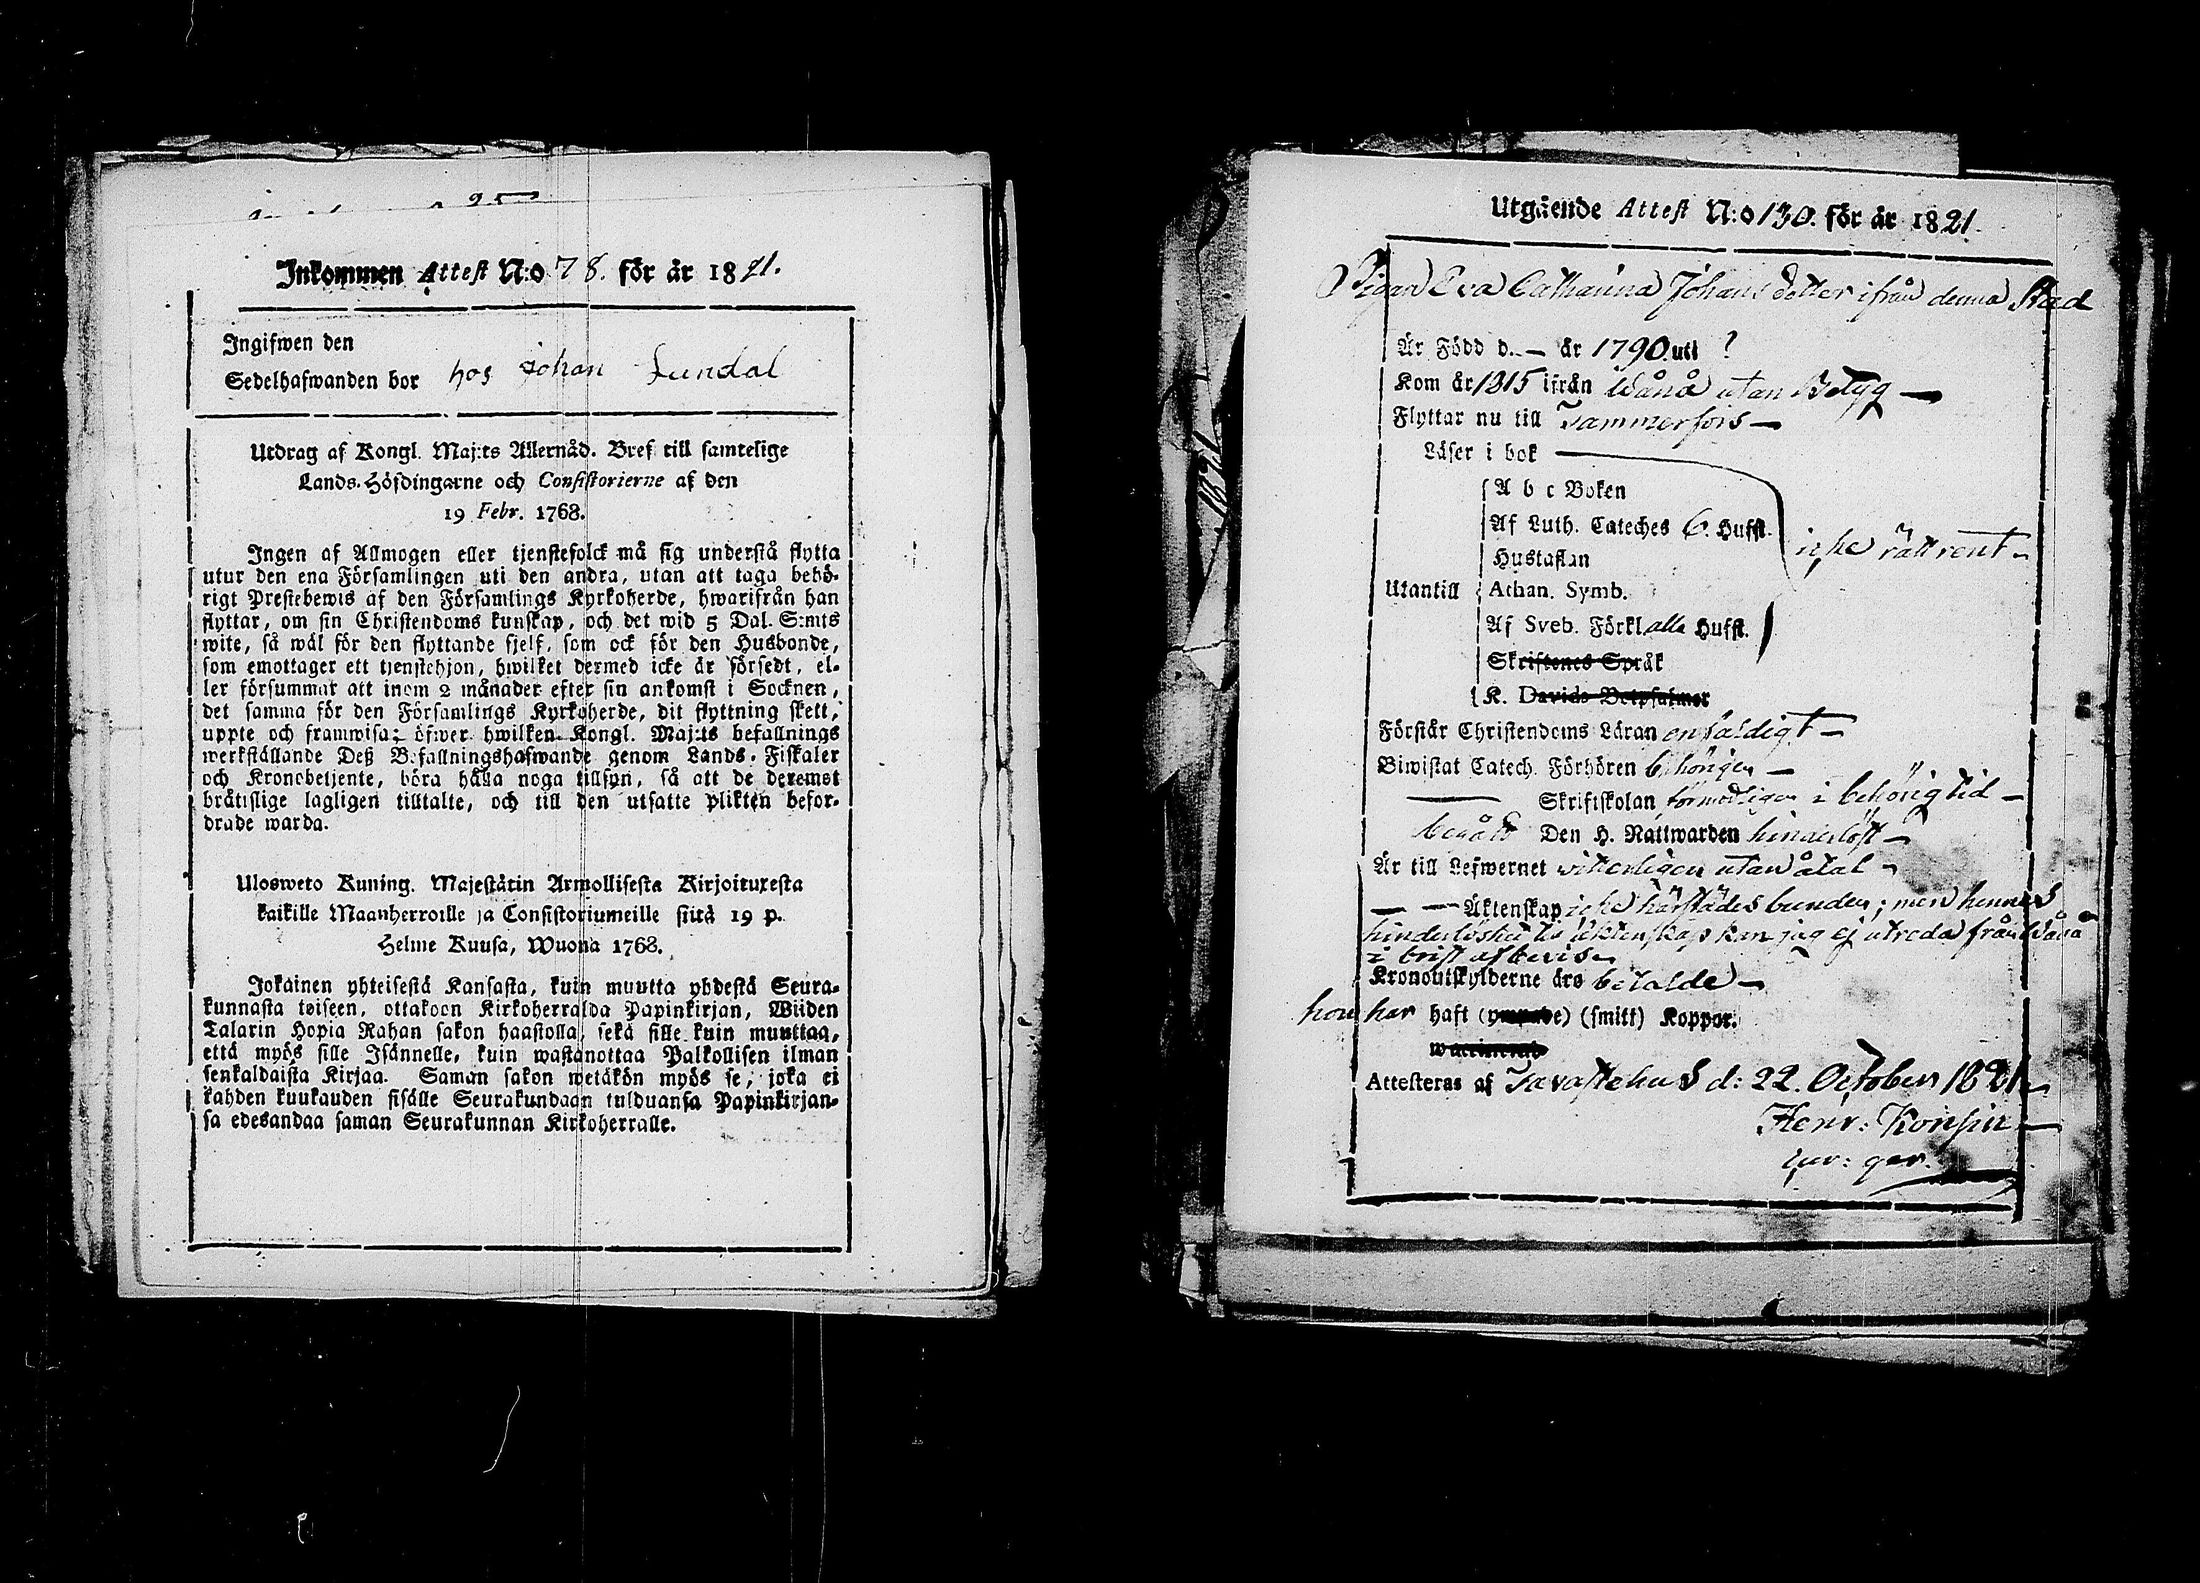 Inkommen Attest N:o 78. för år 1821.
Ingifwen den
Sedelhafwanden bor hos Johan Lundal
Utdrag af Kongl. Maj:ts Allernåd. Bref till samtelige
Lands-Höfdingarne och Consistorierne af den
19 Febr. 1768.
Ingen af Allmogen eller tjenstefolck må sig understå flytta
utur den ena Församlingen uti den andra, utan att taga behö-
rigt Prestebewis af den Församlings Kyrkoherde, hwarifrån han
flyttar, om sin Christendoms kunskap, och det wid 5 Dal. S:mts
wite, så wäl för den flyttande sjelf, som ock för den Husbonde,
som emottager ett tjenstehjon, hwilket dermed icke är försedt, el-
ler försummar att inom 2 månader efter sin ankomst i Socknen,
det samma för den Församlings Kyrkoherde, dit flyttning skett,
uppte och framwisa; öfwer hwilken Kongl. Maj:ts befallnings
werkställande Deß Befallningshafwande genom Lands-Fiskaler
och Kronobetjente, böra hålla noga tillsyn, så att de deremot
bråtislige lagligen tilltalte, och till den utsatte plikten befor-
drade warda.
Ulosweto Kuning. Majestätin Armollisesta Kirjoituxesta
kaikille Maanherroille ja Consistoriumeille siitä 19 p.
Helme Kuusa, Wuonna 1768.
Jokainen yhteisestä Kansasta, kuin muutta yhdestä Seura-
kunnasta toiseen, ottakoon Kirkoherralda Papinkirjan, Wiiden
Talarin Hopia Rahan sakon haastolla, sekä sille kuin muuttaa,
että myös sille Isännelle, kuin wastanottaa Palkollisen ilman
senkaldaista Kirjaa. Saman sakon wetäkön myös se, joka ei
kahden kuukauden sisälle Seurakundaan tulduansa Papinkirjan-
sa edesandaa saman Seurakunnan Kirkoherralle.
Utgående Attest N:o 130. för år 1821.
Pigan Eva Catharina Johansdotter ifrån denna Stad
Är Född d. — år 1790. uti ?
Kom år 1815 ifrån Wånå utan Betyg —
Flyttar nu till Tammerfors —
Läser i bok
A b c Boken
Af Luth. Cateches 6. Hufst.
icke rätt rent
Hustaflan
Utantill Athan. Symb.
Af Sveb. Förkl alla Hufst.
Skriftenes Språk
K. Davids Botpsalmer
Förstår Christendoms Läran enfaldigt —
Biwistat Catech. Förhören behörigen —
— Skriftskolan förmodligen i behörig tid —
begått Den H. Nattwarden hinderlöst —
Är till Lefwernet vitterligen utan åtal
— — Äktenskap icke härstädes bunden; men hennes
hinderlöshet til äktenskap kan jag ej utreda från Wånå
i brist af bevis
Kronoutskylderne äro betalde —
hon har haft (ympade) (smitt) Koppor.
Attesteras af Tavastehus d: 22. October 1821
Henr: Konsin